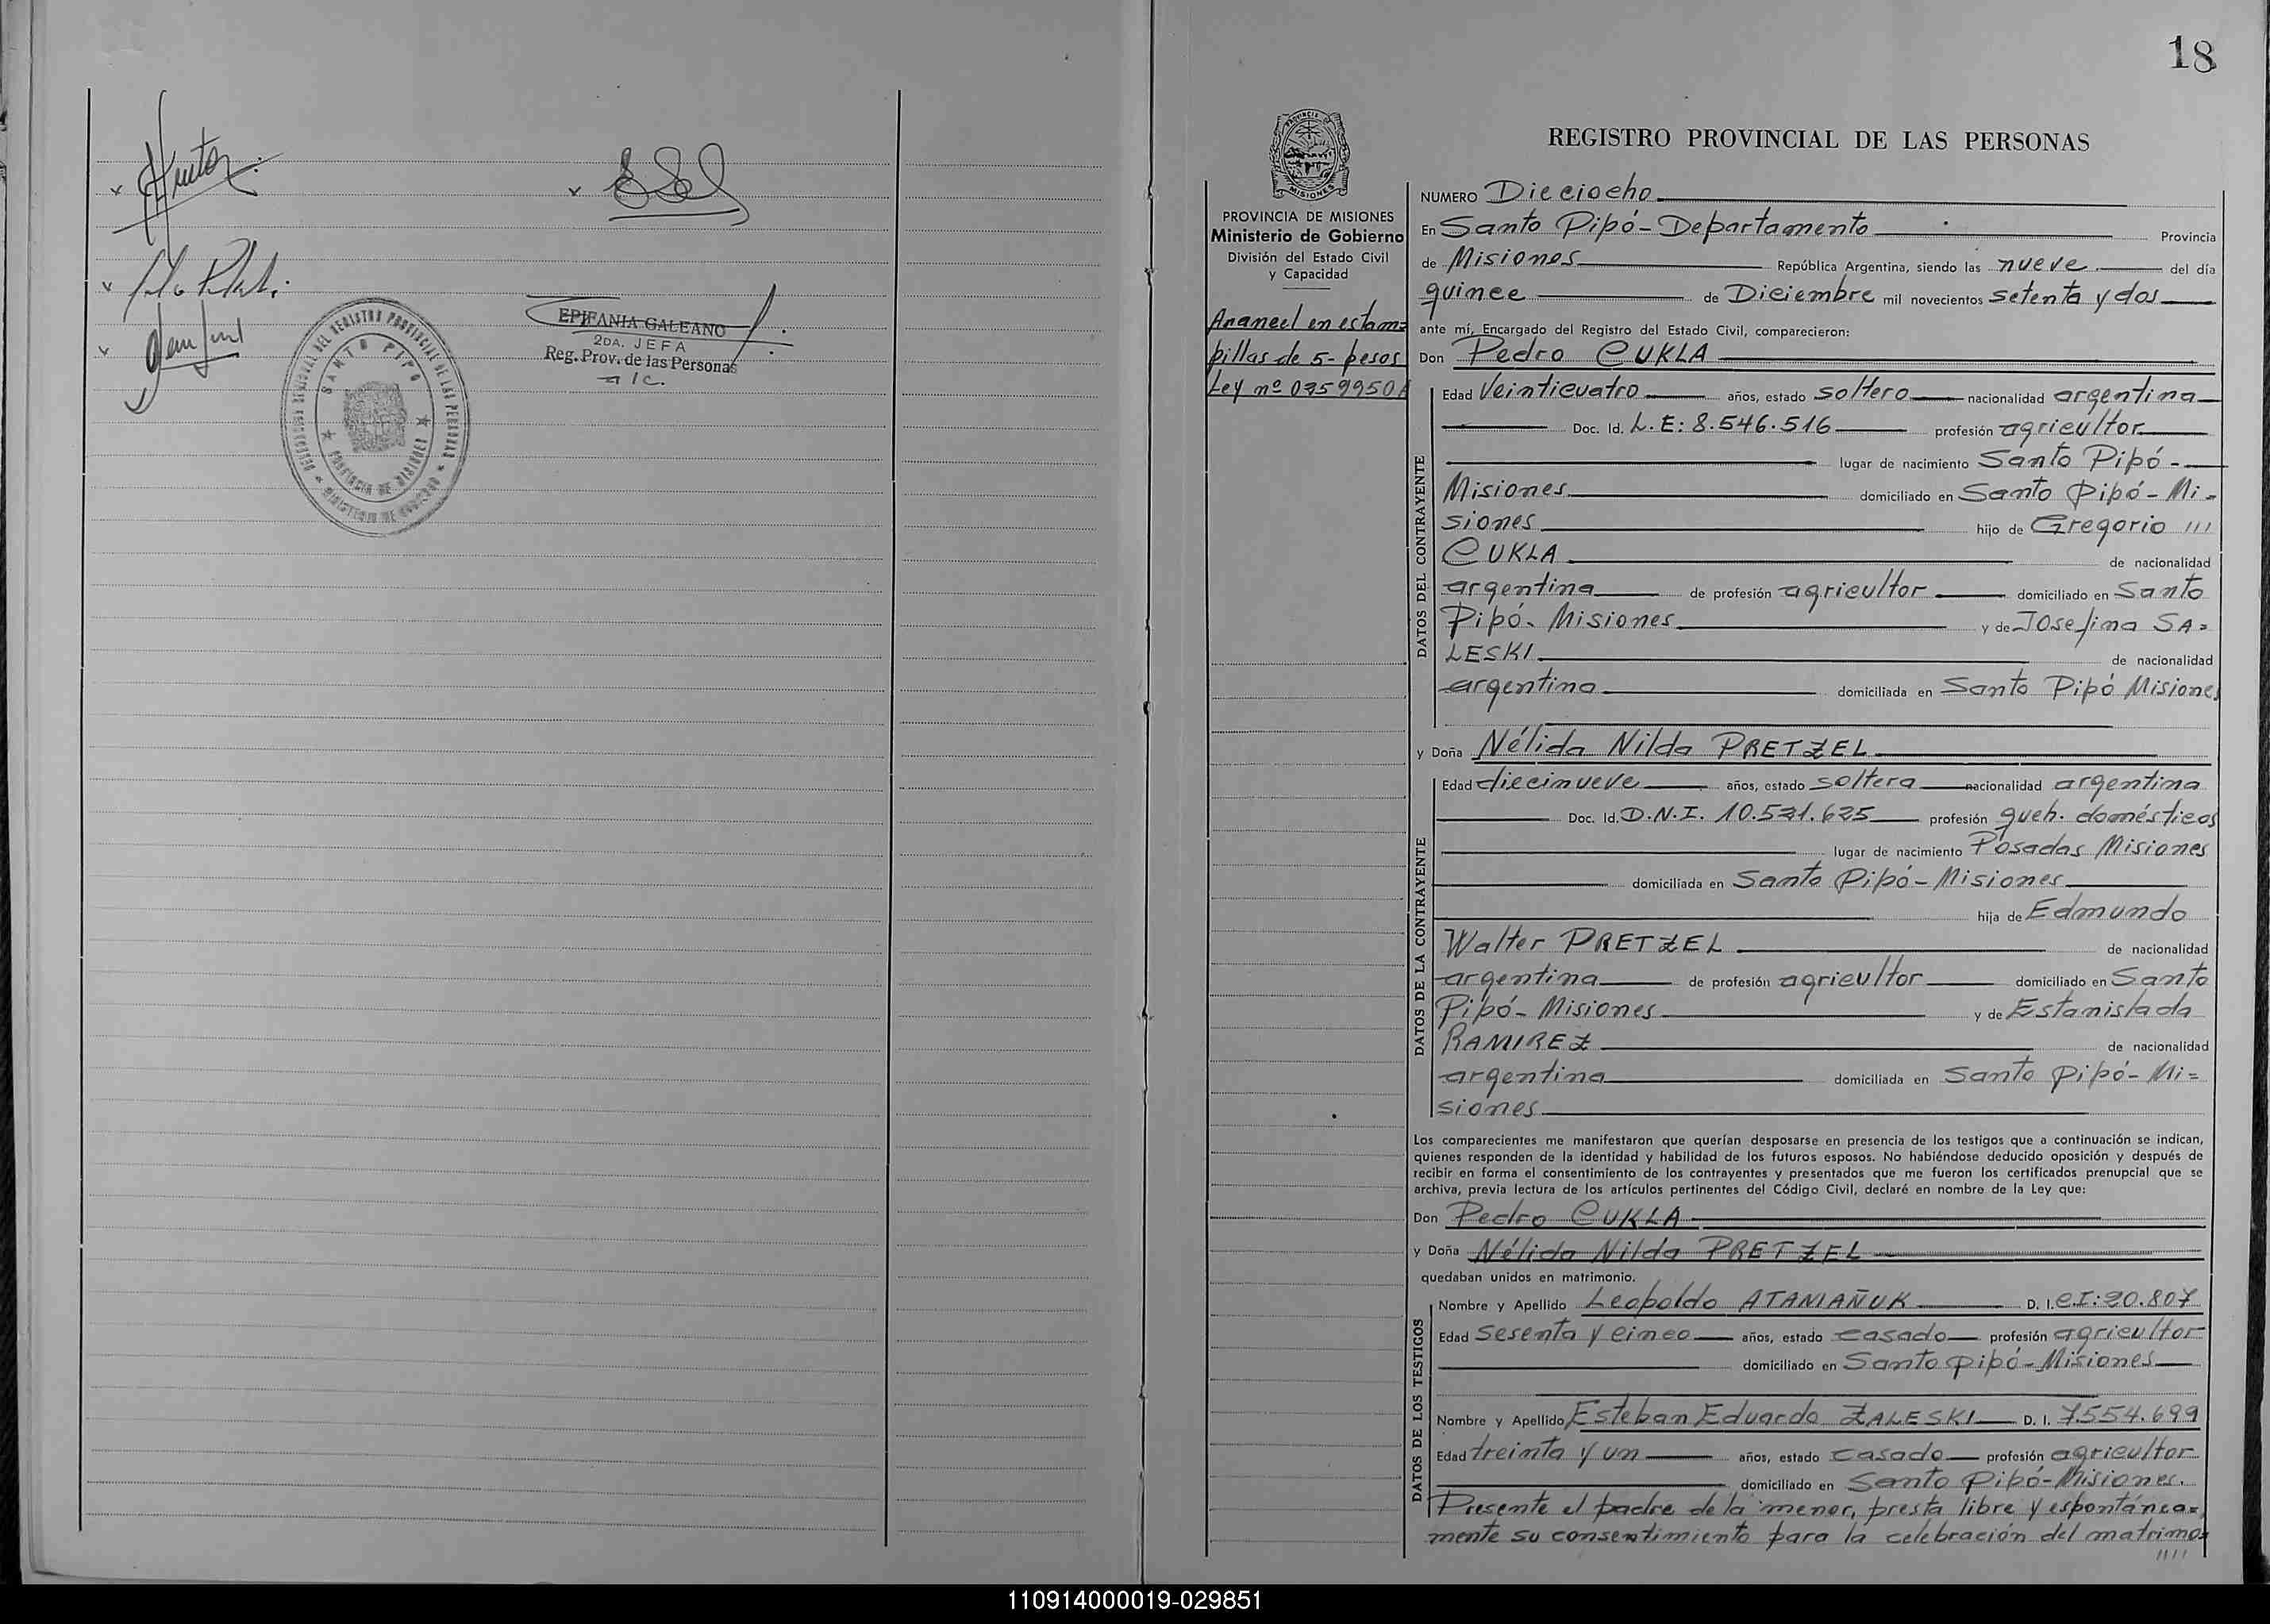 EPIFANIA GALEANO
2DA. JEFA
Reg. Prov. de las Personas
a/c.
SANTO PIPO
PROVINCIA DE MISIONES
18
PROVINCIA DE MISIONES
Ministerio de Gobierno
División del Estado Civil
y Capacidad
Arancel en estam=
pillas de 5- pesos
Ley nº 0759950A
REGISTRO PROVINCIAL DE LAS PERSONAS
NUMERO Dieciocho
En Santo Pipó-Departamento Provincia
de Misiones República Argentina, siendo las nueve del día
quince de Diciembre mil novecientos setenta y dos
ante mí, Encargado del Registro del Estado Civil, comparecieron:
Don Pedro CUKLA
DATOS DEL CONTRAYENTE
Edad Veinticuatro años, estado soltero nacionalidad argentina
Doc. Id. L.E: 8.546.516 profesión agricultor
lugar de nacimiento Santo Pipó-
Misiones domiciliado en Santo Pipó-Mi=
siones hijo de Gregorio ///
CUKLA de nacionalidad
argentina de profesión agricultor domiciliado en Santo
Pipó- Misiones y de Josefina SA=
LESKI de nacionalidad
argentina domiciliada en Santo Pipó Misiones
y Doña Nélida Nilda PRETZEL
DATOS DE LA CONTRAYENTE
Edad diecinueve años, estado soltera nacionalidad argentina
Doc. Id. D.N.I. profesión queh. domésticos
lugar de nacimiento Posadas Misiones
domiciliada en Santo Pipó-Misiones
hija de Edmundo
Walter PRETZEL de nacionalidad
argentina de profesión agricultor domiciliado en Santo
Pipó- Misiones y de Estanislada
RAMIREZ de nacionalidad
argentina domiciliada en Santo Pipó-Mi=
siones
Los comparecientes me manifestaron que querían desposarse en presencia de los testigos que a continuación se indican,
quienes responden de la identidad y habilidad de los futuros esposos. No habiéndose deducido oposición y después de
recibir en forma el consentimiento de los contrayentes y presentados que me fueron los certificados prenupcial que se
archiva, previa lectura de los artículos pertinentes del Código Civil, declaré en nombre de la Ley que:
Don Pedro CUKLA
y Doña Nélida Nilda PRETZEL
quedaban unidos en matrimonio.
DATOS DE LOS TESTIGOS
Nombre y Apellido Leopoldo ATAMAÑUK D. I. C.I:20.807
Edad sesenta y cinco años, estado casado profesión agricultor
domiciliado en Santo Pipó-Misiones
Nombre y Apellido Esteban Eduardo ZALESKI D. I. 7.554.699
Edad treinta y un años, estado casado profesión agricultor
domiciliado en Santo Pipó-Misiones.
Presente el padre de la menor, presta libre y espontánea=
mente su consentimiento para la celebración del matrimo=
////
110914000019-029851